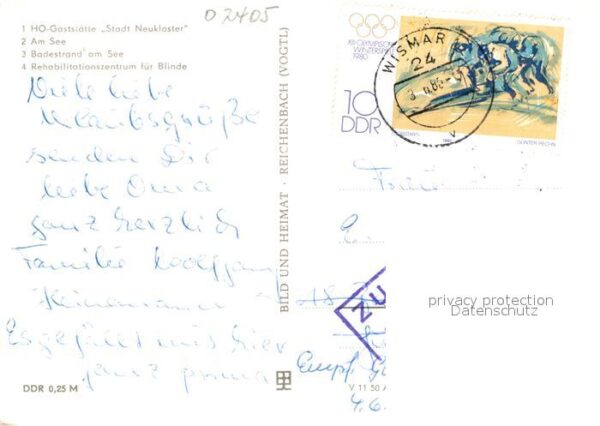 02405
1 HO-Gaststätte „Stadt Neukloster"
2 Am See
3 Badestrand am See
4 Rehabilitationszentrum für Blinde
Viele liebe
Urlaubsgrüße
senden Dir
liebe Oma
ganz herzlich
Familie Wolfgang
Heinemann
Es gefällt uns hier
ganz prima
DDR 0,25 M
BILD UND HEIMAT · REICHENBACH (VOGTL)
V 11 50 A
XIII. OLYMPISCHE
WINTERSPIELE
1980
10
DDR
WISMAR
24
v
1980
ZU
Empf.
4.6.
privacy protection
Datenschutz